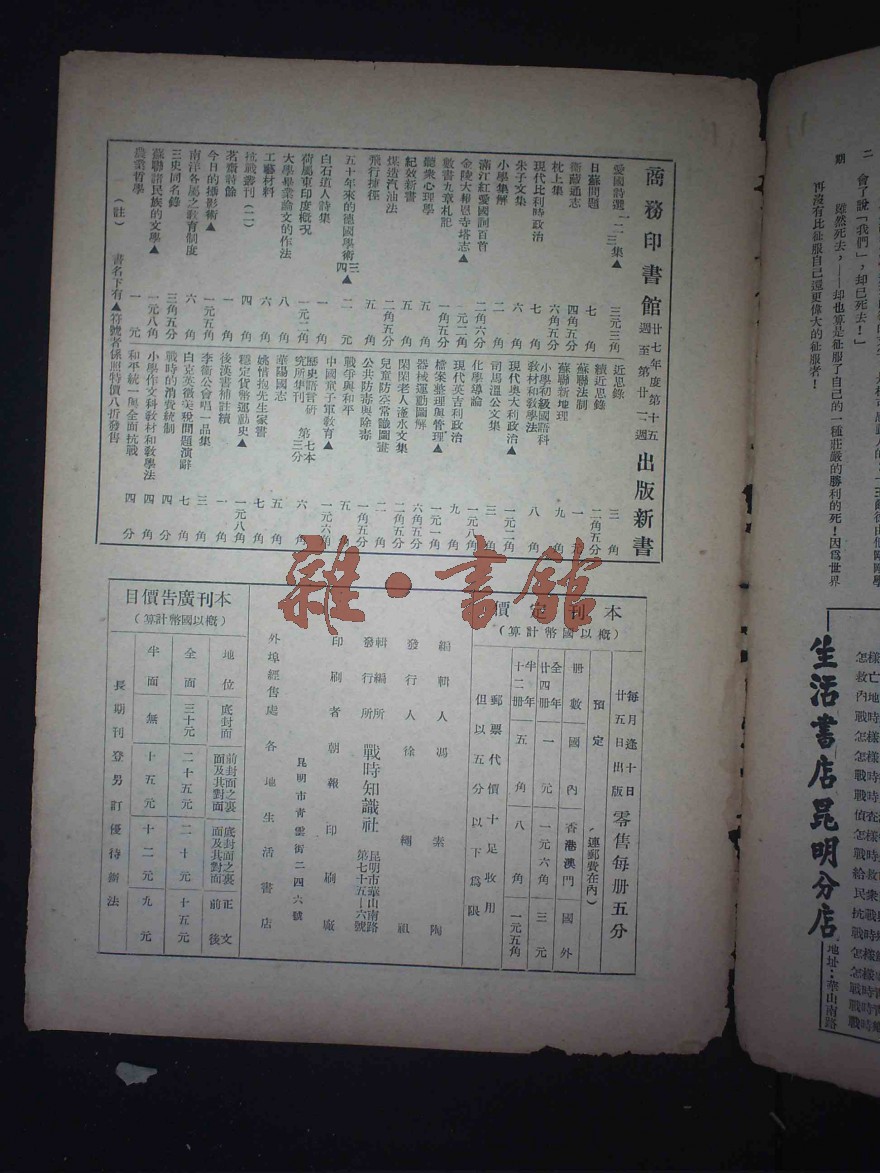 二
期
會了說「我們」，却已死去！」
雖然死去，——却也算是征服了自己的一種莊嚴的勝利的死！因爲世界
再沒有比征服自己還更偉大的征服者！
生活書店昆明分店
地址：華山南路
商務印書館
廿七年度第十五
週至第廿三週
出版新書
愛國詩選 一二三集▲ 三元三角
日蘇問題 七角
新蘭通志 四角五分
枕上集 六角五分
現代比利時政治 七角
朱子文集 六角
小學集解 二角
滿江紅愛國詞百首 二角六分
金陵大報恩寺塔志▲ 一元二角
數書九章札記 一元五角
聽衆心理學 五角
紀效新書 五角
煤造汽油法 二角五分
飛行捷徑 五角
五十年來的德國學術 三四▲ 二元
白石道人詩集 一角
荷屬東印度概況 一元二角
大學畢業論文的作法 八角
工藝材料 六角
抗戰叢刊（二） 四角
茗齋詩餘 一角
今日的攝影術▲ 一元五角
南洋各屬之教育制度 六角
三史同名錄 三角五分
蘇聯諸民族的文學▲ 一元八角
農業哲學 一元
近思錄 三角
續近思錄 二角五分
蘇聯法制 一元
蘇聯新地理 九角
小學初級國語科教材和教學法 八角
現代奧大利政治▲ 一元二角
司馬溫公文集 三角
化學導論 一元八角
現代英吉利政治 九角
檔案整理與管理▲ 一元一角
器械運動圖解 六角五分
閑閑老人滏水文集 二角五分
兒童防空常識圖畫 二角
公共防毒與除毒 一角五分
戰爭與和平 五角
中國童子軍教育▲ 一元六角
歷史語言研究所集刊 第七本第三分 六角
華陽國志 五角
姚惜抱先生家書 七角
穩定貨幣運動史▲ 一元八角
後漢書補註續 一角
李衛公會唱一品集 三角
白克英徵美稅問題演辭 七角
戰時的消費統制 四角
小學作文科教材和教學法 四角
和平統一與全面抗戰 四分
（註） 書名下有▲符號者係照特價八折發售
本刊定價
（概以國幣計算）
每月逢十日廿五日出版 零售每册五分
預定 （連郵費在內）
册數 國內 香港澳門 國外
全年廿四册 一元 一元六角 三元
半年十二册 五角 八角 一元五角
郵票代價十足收用
但以五分以下爲限
編輯人 馮素陶
發行人 徐繩祖
編輯所
發行所 戰時知識社 昆明市華山南路第七十五—六號
印刷者 朝報印刷廠
昆明市青雲街二四六號
外埠經售處 各地生活書店
本刊廣告價目
（概以國幣計算）
地位 底封面 前封面之裏面及其對面 底封面之裏面及其對面 正文前後
全面 三十元 二十五元 二十元 十五元
半面 無 十五元 十二元 九元
長期刊登另訂優待辦法
雜·書館